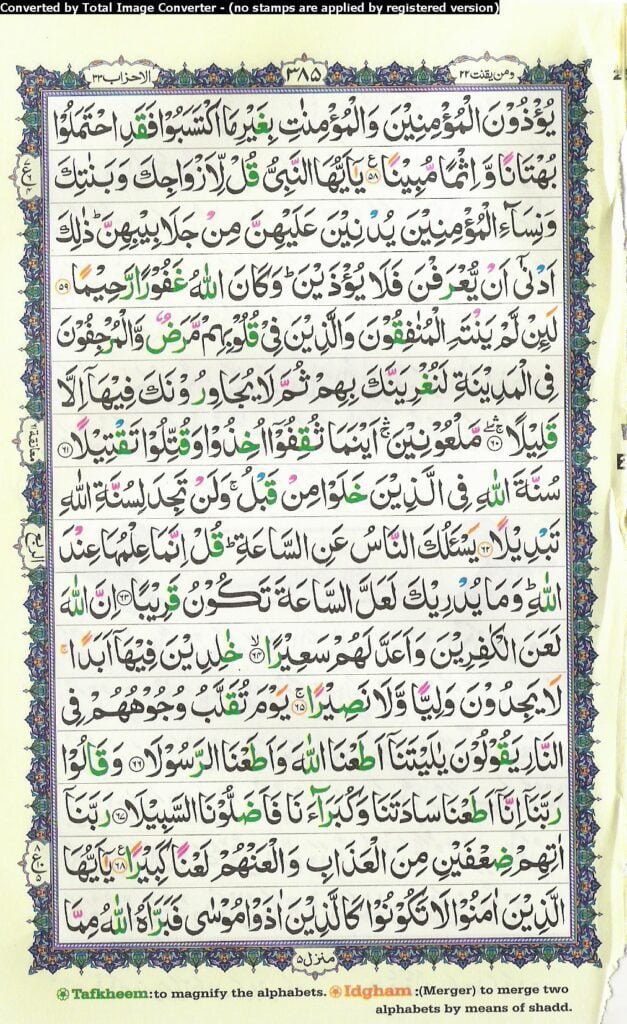 Converted by Total Image Converter - (no stamps are applied by registered version)
ومن یقنت ۲۲
۳۸۵
الاحزاب ۳۳
یُؤْذُوْنَ الْمُؤْمِنِیْنَ وَالْمُؤْمِنٰتِ بِغَیْرِ مَا اكْتَسَبُوْا فَقَدِ احْتَمَلُوْا
بُهْتَانًا وَّ اِثْمًا مُّبِیْنًا ۵۸ یٰۤاَیُّهَا النَّبِیُّ قُلْ لِّاَزْوَاجِكَ وَ بَنٰتِكَ
وَ نِسَآءِ الْمُؤْمِنِیْنَ یُدْنِیْنَ عَلَیْهِنَّ مِنْ جَلَابِیْبِهِنَّ ؕ ذٰلِكَ
اَدْنٰۤی اَنْ یُّعْرَفْنَ فَلَا یُؤْذَیْنَ ؕ وَ كَانَ اللّٰهُ غَفُوْرًا رَّحِیْمًا ۵۹
لَىِٕنْ لَّمْ یَنْتَهِ الْمُنٰفِقُوْنَ وَالَّذِیْنَ فِیْ قُلُوْبِهِمْ مَّرَضٌ وَّالْمُرْجِفُوْنَ
فِی الْمَدِیْنَةِ لَنُغْرِیَنَّكَ بِهِمْ ثُمَّ لَا یُجَاوِرُوْنَكَ فِیْهَاۤ اِلَّا
قَلِیْلًا ۶۰ مَّلْعُوْنِیْنَ ۛۚ اَیْنَمَا ثُقِفُوْۤا اُخِذُوْا وَ قُتِّلُوْا تَقْتِیْلًا ۶۱
سُنَّةَ اللّٰهِ فِی الَّذِیْنَ خَلَوْا مِنْ قَبْلُ ۚ وَلَنْ تَجِدَ لِسُنَّةِ اللّٰهِ
تَبْدِیْلًا ۶۲ یَسْـَٔلُكَ النَّاسُ عَنِ السَّاعَةِ ؕ قُلْ اِنَّمَا عِلْمُهَا عِنْدَ
اللّٰهِ ؕ وَ مَا یُدْرِیْكَ لَعَلَّ السَّاعَةَ تَكُوْنُ قَرِیْبًا ۶۳ اِنَّ اللّٰهَ
لَعَنَ الْكٰفِرِیْنَ وَ اَعَدَّ لَهُمْ سَعِیْرًا ۙ ۶۴ خٰلِدِیْنَ فِیْهَاۤ اَبَدًا ۚ
لَا یَجِدُوْنَ وَلِیًّا وَّ لَا نَصِیْرًا ۚ ۶۵ یَوْمَ تُقَلَّبُ وُجُوْهُهُمْ فِی
النَّارِ یَقُوْلُوْنَ یٰلَیْتَنَاۤ اَطَعْنَا اللّٰهَ وَ اَطَعْنَا الرَّسُوْلَا ۶۶ وَ قَالُوْا
رَبَّنَاۤ اِنَّاۤ اَطَعْنَا سَادَتَنَا وَ كُبَرَآءَنَا فَاَضَلُّوْنَا السَّبِیْلَا ۶۷ رَبَّنَاۤ
اٰتِهِمْ ضِعْفَیْنِ مِنَ الْعَذَابِ وَ الْعَنْهُمْ لَعْنًا كَبِیْرًا ۶۸ یٰۤاَیُّهَا
الَّذِیْنَ اٰمَنُوْا لَا تَكُوْنُوْا كَالَّذِیْنَ اٰذَوْا مُوْسٰی فَبَرَّاَهُ اللّٰهُ مِمَّا
معانقة
الربع
منزل ۵
Tafkheem:to magnify the alphabets. Idgham :(Merger) to merge two
alphabets by means of shadd.